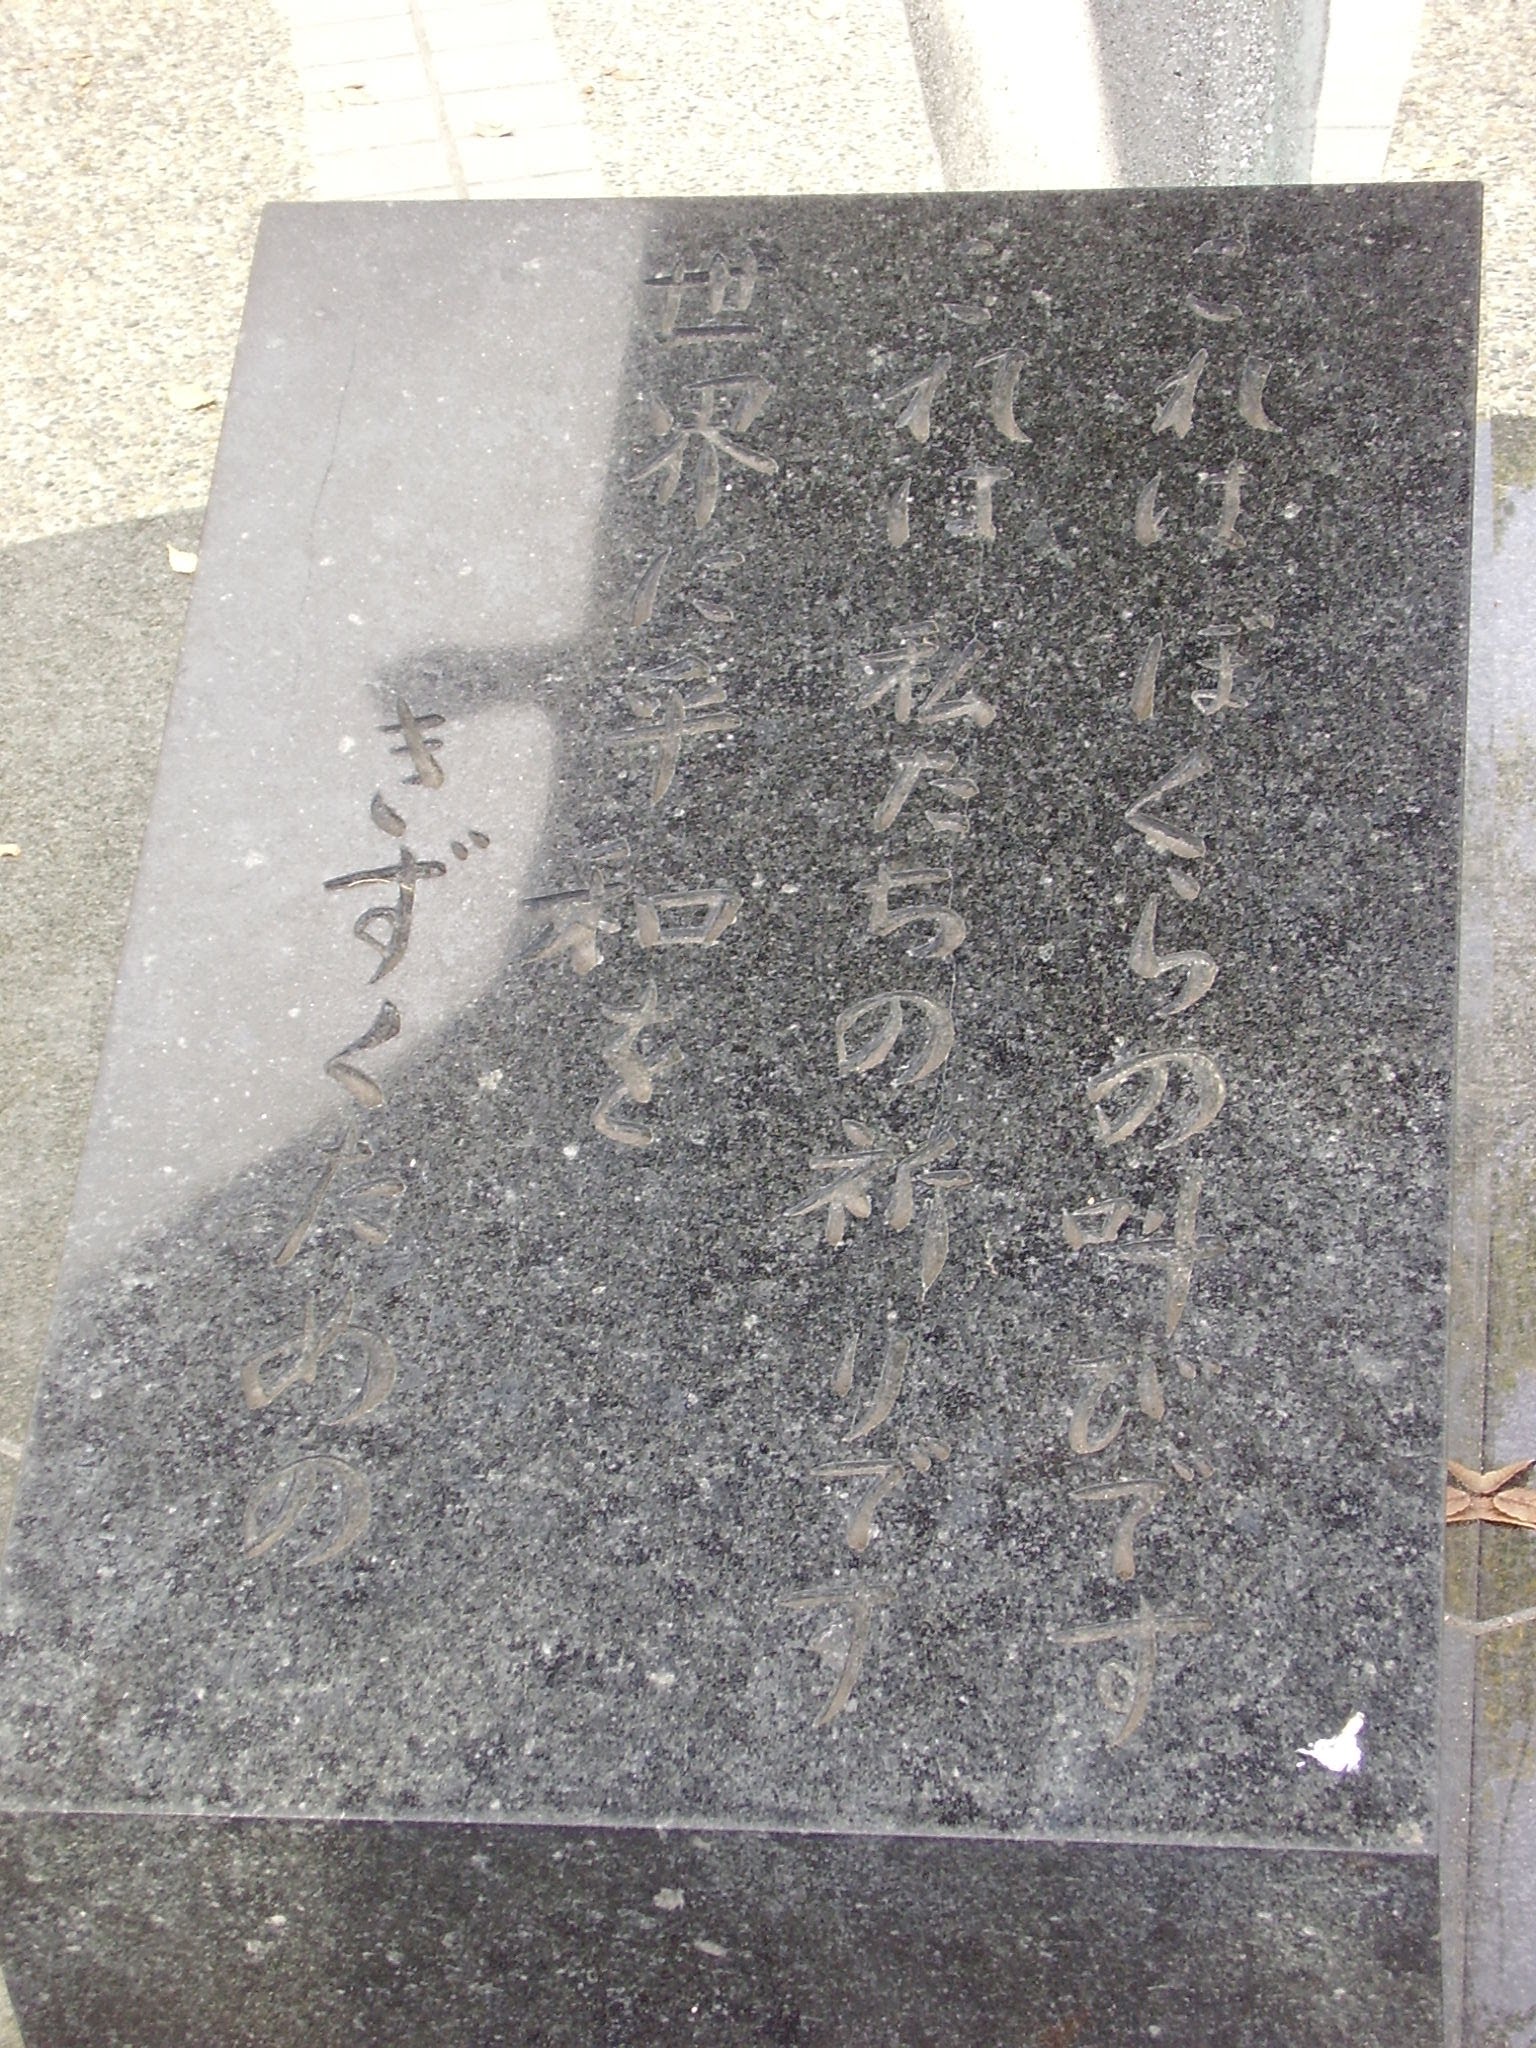 これはぼくらの叫びです
これは私たちの祈りです
世界に平和を
きずくための